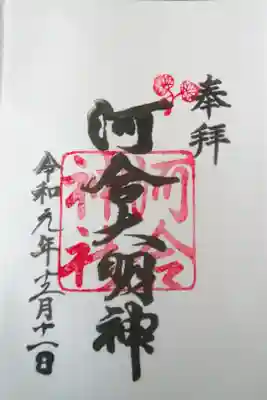 奉拝
河合大明神
河合神社
令和元年十二月十一日